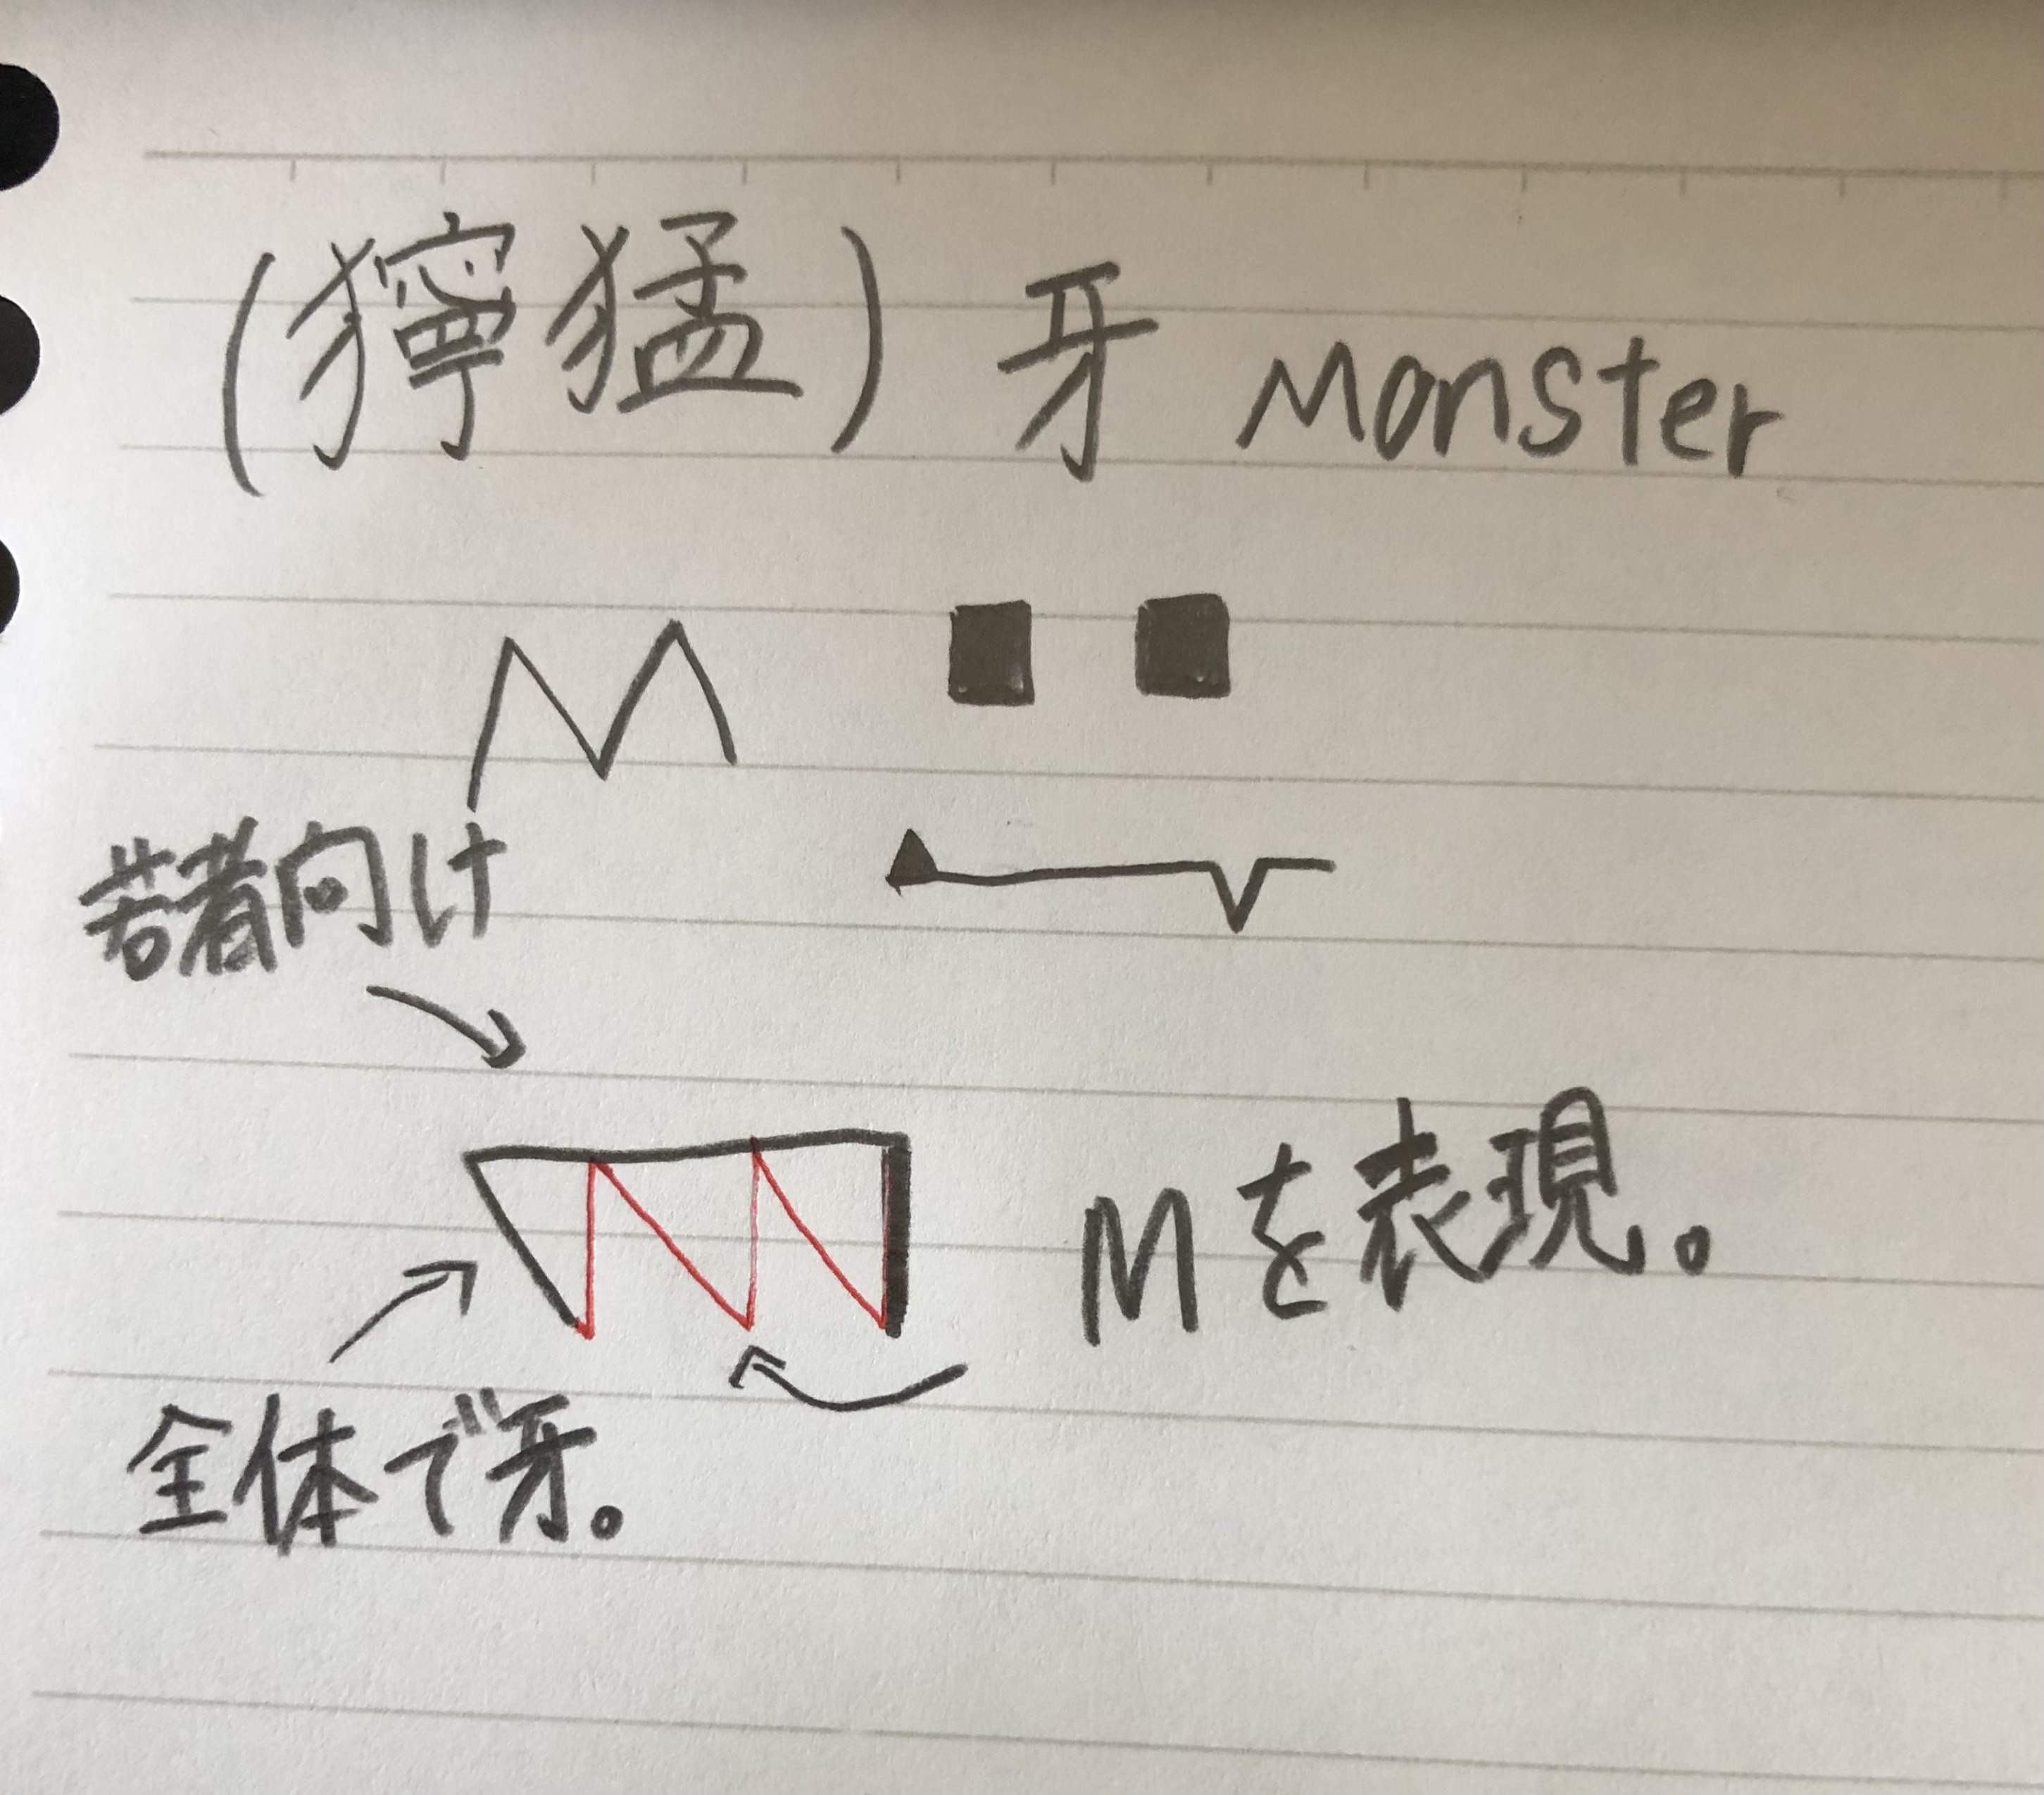 (獰猛) 牙 Monster
M
若者向け
Mを表現。
全体で牙。